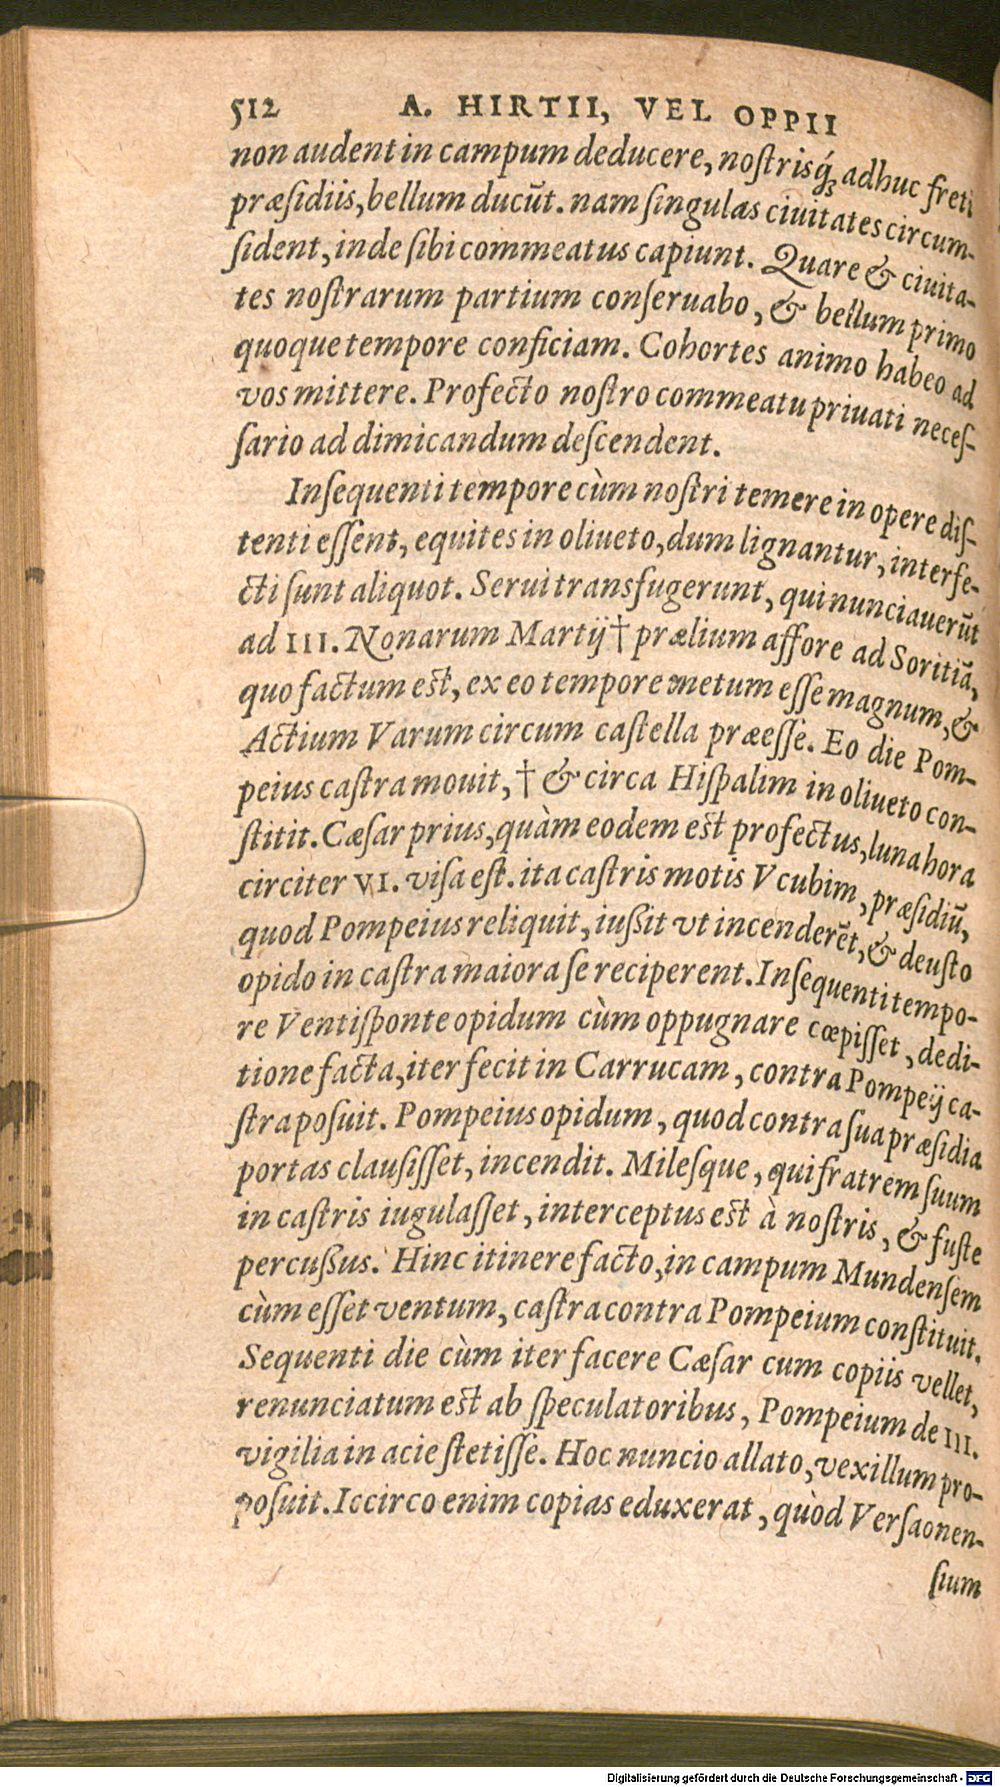 512 A. HIRTII, VEL OPPII
non audent in campum deducere, noſtrisq́; adhuc freti
præſidiis, bellum ducūt. nam ſingulas ciuitates circum-
ſident, inde ſibi commeatus capiunt. Quare & ciuita-
tes noſtrarum partium conſeruabo, & bellum primo
quoque tempore conficiam. Cohortes animo habeo ad
vos mittere. Profecto noſtro commeatu priuati neceſ-
ſario ad dimicandum deſcendent.
Inſequenti tempore cùm noſtri temere in opere diſ-
tenti eſſent, equites in oliueto, dum lignantur, interfe-
cti ſunt aliquot. Serui transfugerunt, qui nunciauerūt
ad III. Nonarum Martij † prælium affore ad Soritiā,
quo factum eſt, ex eo tempore metum eſſe magnum, &
Actium Varum circum caſtella præeſſe. Eo die Pom-
peius caſtra mouit, † & circa Hiſpalim in oliueto con-
ſtitit. Cæſar prius, quàm eodem eſt profectus, luna hora
circiter VI. viſa eſt. ita caſtris motis Vcubim, præſidiū,
quod Pompeius reliquit, iußit vt incenderēt, & deuſto
opido in caſtra maiora ſe reciperent. Inſequenti tempo-
re Ventiſponte opidum cùm oppugnare cœpiſſet, dedi-
tione facta, iter fecit in Carrucam, contra Pompeij ca-
ſtra poſuit. Pompeius opidum, quod contra ſua præſidia
portas clauſiſſet, incendit. Mileſque, qui fratrem ſuum
in caſtris iugulaſſet, interceptus eſt à noſtris, & fuſte
percußus. Hinc itinere facto, in campum Mundenſem
cùm eſſet ventum, caſtra contra Pompeium conſtituit.
Sequenti die cùm iter facere Cæſar cum copiis vellet,
renunciatum eſt ab ſpeculatoribus, Pompeium de III.
vigilia in acie ſtetiſſe. Hoc nuncio allato, vexillum pro-
poſuit. Iccirco enim copias eduxerat, quòd Verſaonen-
ſium
Digitalisierung gefördert durch die Deutsche Forschungsgemeinschaft - DFG